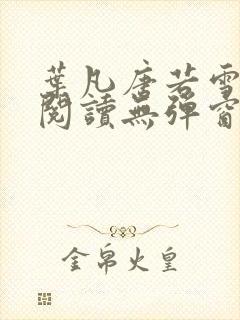 葉凡唐若雪
閱讀無彈窗
金帛火皇